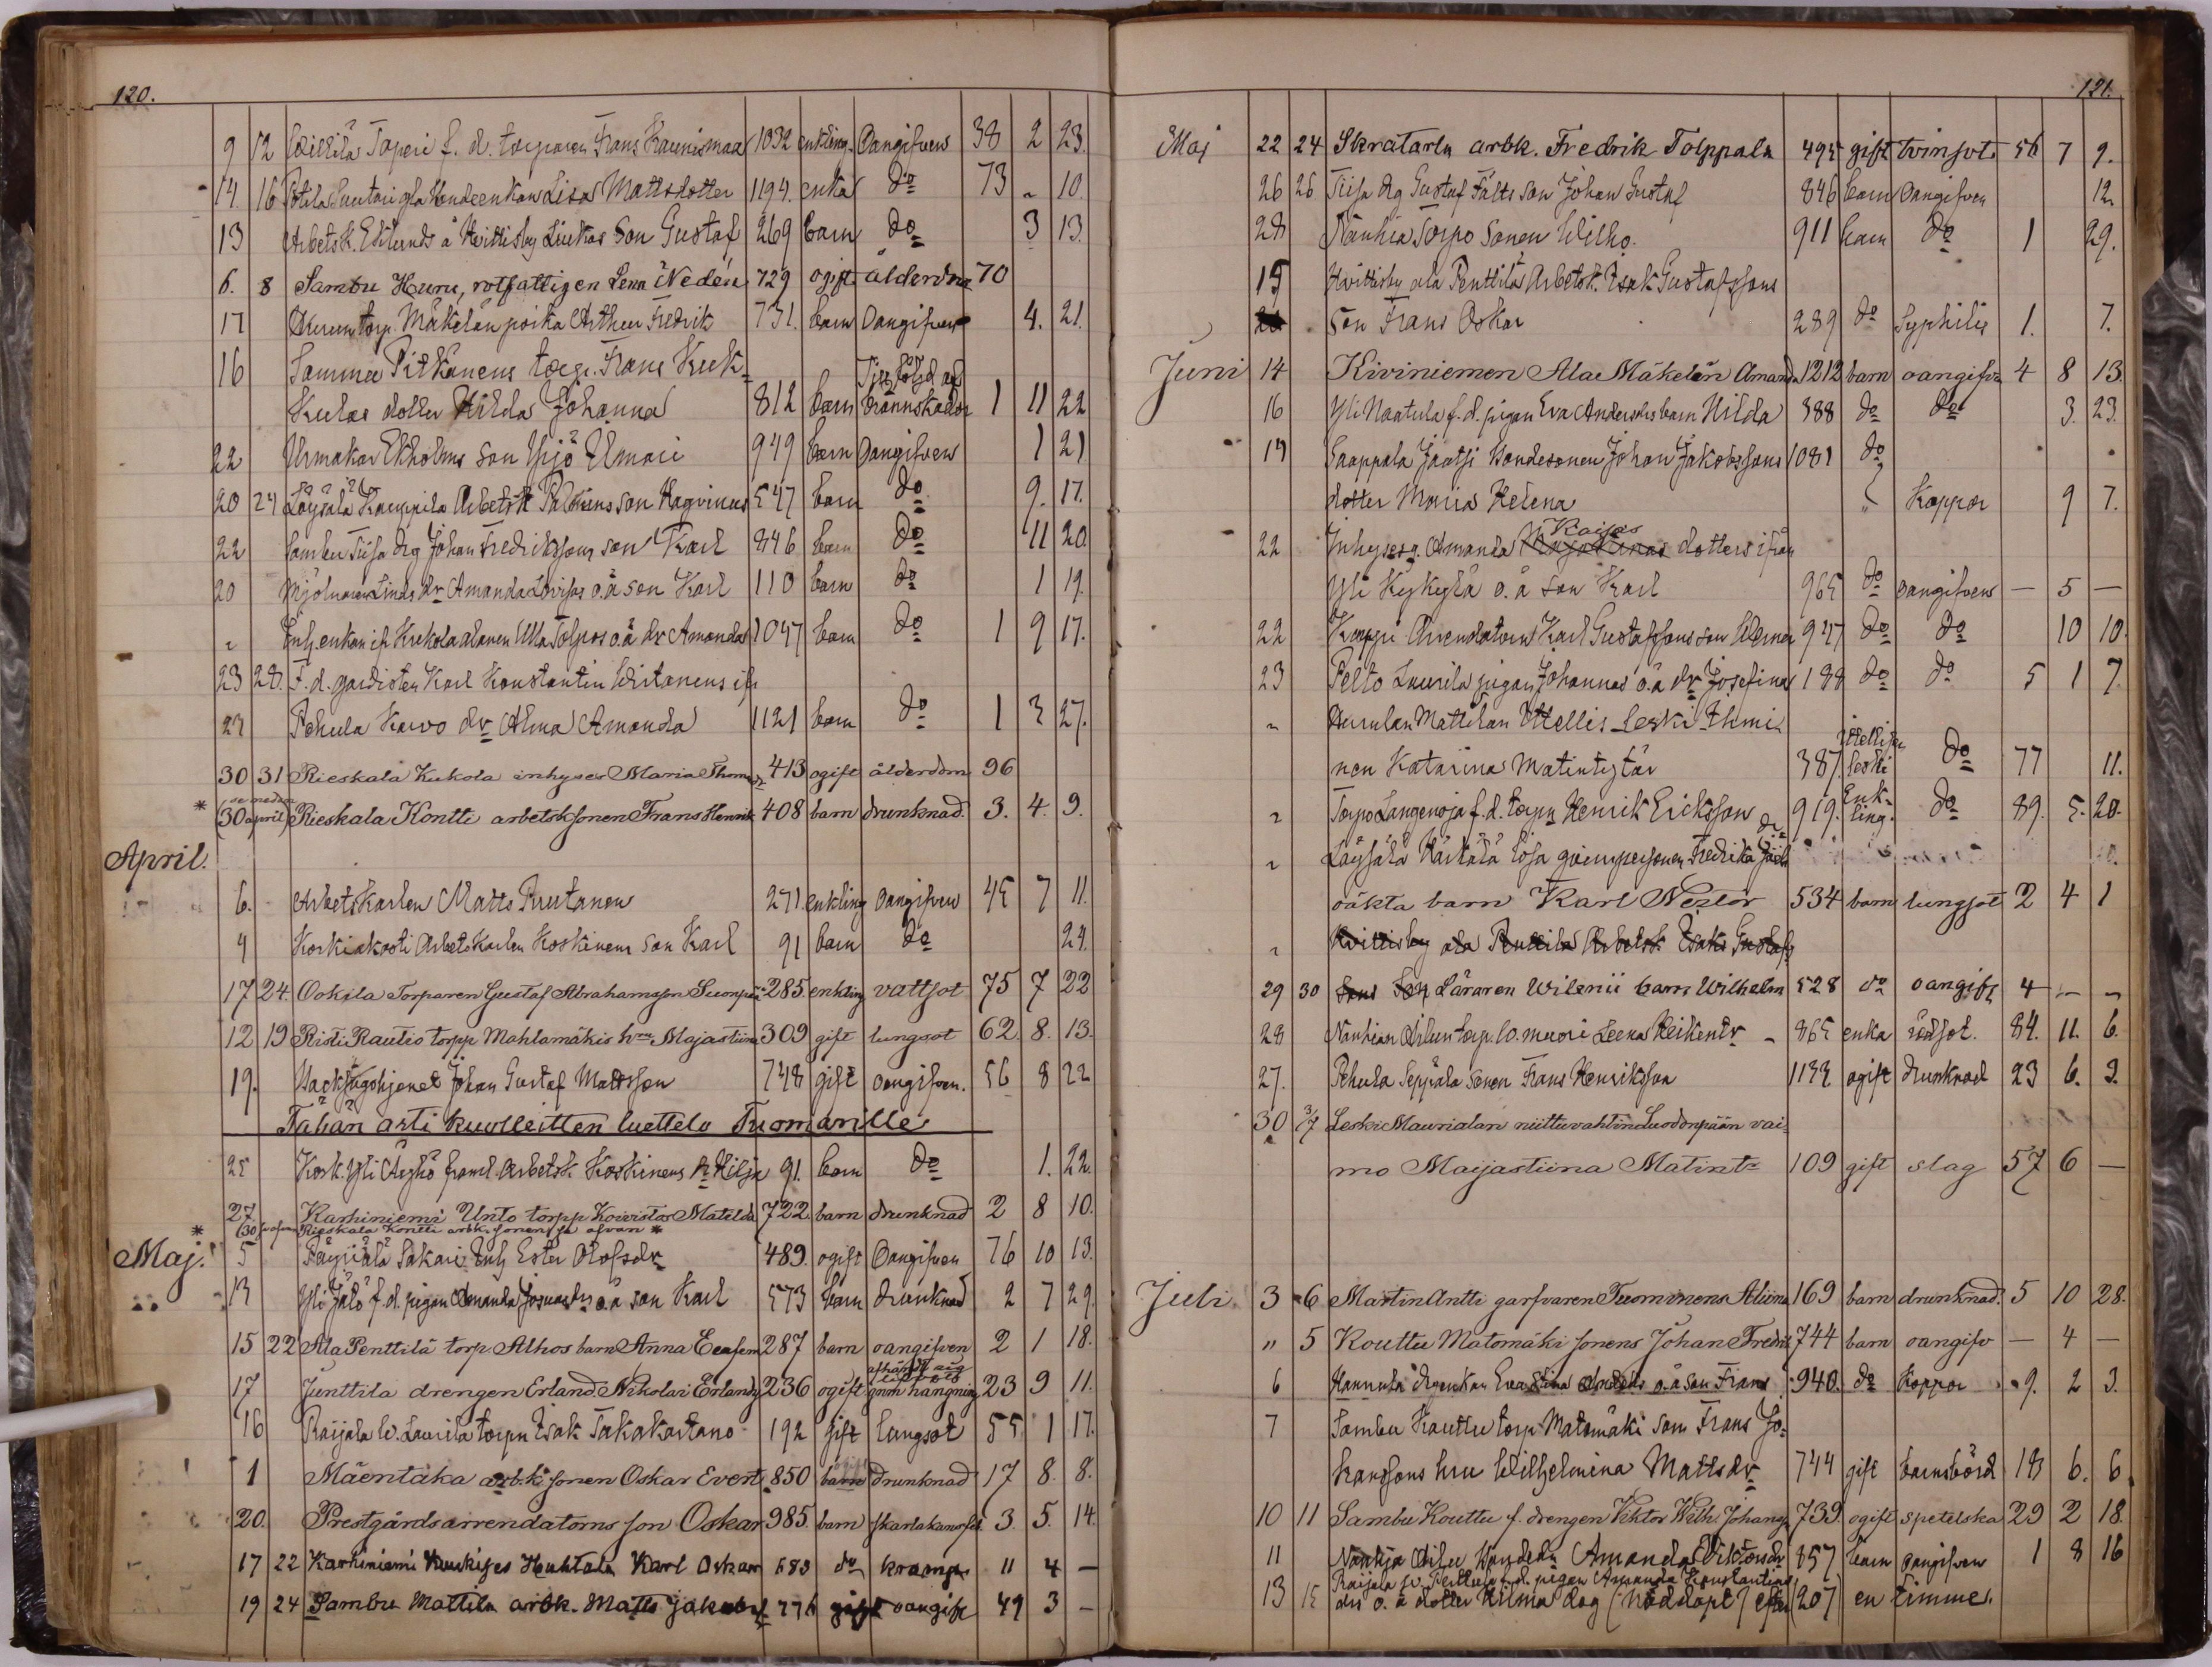 120.
9 12 Torperi f. d. torparen Frans Kaunismaa 1032 enkling Oangifven 38 2 23.
14 16 Lisa Mattsdotter 1194. enka do 73 - 10.
13 Arbetsk. Eklunds å Hvittisby Luckas son Gustaf 269 barn do 3 13.
6. 8 Sambu Huru, rotfattigen Lena Nedén 729 ogift ålderdom 70
17 Mäkelän poika Arthur Fredrik 731. barn Oangifven 4. 21.
16 Sammu Pitkänens torp. Frans Kuk-
Till följd af
kulas dotter Hilda Johanna 812 barn brännskador 1 11 22
22 Urmakar Ekholms son Yrjö Ilmari 949 barn Oangifven 1 21
20 24 Löysälä Kauppila Arbetsk son 547 barn do 9. 17.
22 Sambu Tiisa drg Johan Fredrikssons son Karl 846 barn do 11 20
20 Mjölnaren Linds dr Amanda Lovisas o.ä son Karl 110 barn do 1 19.
" Inh. enkan ifr Krekola Ulla Tolpos o.ä dr Amanda 1047 barn do 1 9 17.
23 28. F. d. gardisten Karl Konstantin Wirtanens ifr
27 Pehula dr Alma Amanda 1121 barn do 1 3 27.
30 31 Rieskala Kukola inhyses Maria Thomasdr 413 ogift ålderdom 96
* (30 april) Rieskala Kontti arbetsk sonen Frans Henrik 408 barn drunknad. 3. 4. 9.
April.
6. Arbetskarlen Matts Rustanen 271. enkling Oangifven 45 7 11.
9 Koskiakosti Arbetskarlen Koskinens son Karl 91 barn do 24.
17 24. Ookila Torparen Gustaf Abrahamsson Suonpää 285. enkling vattsot 75 7 22
12 19 Risti Rautio torpp Mahlamäkis hru Majastiina 309 gift lungsot 62. 8. 13.
19. Johan Gustaf Mattsson 748 gift oangifven. 56 8 22
Tähän asti kuolleitten luettelo Tuomarille
25 Kosk. Yli Äijhö framl. Arbetsk Koskinens dr Hilja 91. barn do 1. 22.
27 Karhiniemi Unto torpp Koivistos Matilda 722. barn drunknad 2 8 10.
* (30 Rieskala Kontti arbk sonen se ofvan *
Maj. 5 Päyriälä Sakari Inh Ester Olofsdr 489. ogift Oangifven 76 10 13.
13 Yli Jalo f. d. pigan Amanda Josuasdrs o.ä son Karl 573 barn drunknad 2 7 29.
15 22 Ala Penttilä torp Alhos barn Anna Eufem 287 barn oangifven 2 1 18.
17 Junttila drengen Erland Nikolai Erlandss 236 ogift genom hängning 23 9 11.
16 Raijala W. Laurila torpn Isak Takakartano 192 gift lungsot 55. 1 17.
1 Mäentaka arb.k. sonen Oskar Evert 850 barn drunknad 17 8. 8.
20. Prestgårdsarrendatorns son Oskar 985. barn skarlakansf. 3. 5. 14.
17 22 Karhiniemi Kuukijes Huhtala Karl Oskar 683 do 11 4 —
19 24 Sambu Mattila arbk. Matts Jakobss 776 gift oangifv 49 3 —
121.
Maj 22 24 Skratarla arbk. Fredrik Tolppala 495 gift tvinsot 56 7 9.
26 26 Tiisa drg Gustaf Fälts son Johan Gustaf 846 barn Oangifven 12
28 Nanhia Torpo Sonen Wilho. 911 barn do 1 29.
15 Hvittisby ala Penttilä Arbetsk. Isak Gustafssons
son Frans Oskar 289 do Syphilis 1. 7.
Juni 14 Kiviniemen Ala Mäkelän Amanda 1212 barn oangifv. 4 8 13.
16 Yli Naatula f. d. pigan Eva Andersdrs barn Hilda 388 do do 3. 23.
19 Saappala Jaatsi Bondesonen Johan Jakobssons 1081 do
dotter Maria Helena " Koppor 9 7.
22 Inhyses. Amanda Kaisas dotters ifrån
Yli Kyhkylä o. ä son Karl 965 do oangifven — 5 —
22 Arrendatorns Karl Gustafssons son Werner 947 do do 10 10.
23 Pelto Laurila pigan Johannas o.ä dr Josefina 188 do do 5 1 7.
" Mattilan Itellis Leski Ihmi-
nen Katarina Matintytär 387. Itellis leski do 77 11.
" Torpo Langenoja f. d. torpn Henrik Eriksson 919. Enk-ling. do 89. 5. 20.
" Löysälä lösa qvinnpersonen Fredrika
oäkta barn Karl Nestor 534 barn lungsot 2 4 1
" Hvittisby ala Penttilä Arbetsk Isaks Gustafs
29 30 Läraren Wilenii barn Wilhelm 528 do oangifv 4 — —
28 Nanhian torp. W. muori Leena Heikentr - 865 enka rödsot. 84. 11. 6.
27. Pehula Seppälä sonen Frans Henriksson 1133 ogift drunknad 23 6. 3.
30 3/7 Leski Maurialan niittuvahtin Luodonpään vai-
mo Maijastiina Matintr 109 gift slag 57 6 —
Juli. 3 6 Martin Antti garfvaren Tuominens Aliina 169 barn drunknad. 5 10 28.
" 5 Kouttu Matomäki sonens Johan Fredrik 744 barn oangifv — 4 —
6 Hannula Eva Stina o.ä son Frans 940. do Koppor 9. 2 3.
7 Sambu Kauttu torp Matomäki son Frans Jo-
hanssons hru Wilhelmina Mattsdr 744 gift barnsbörd 18 6. 6.
10 11 Sambu Kouttu f. drengen Viktor Wilh. Johanss 739 ogift spetelska 29 2 18.
11 Nanhja Amanda Viktorsdr 857 barn oangifven 1 8 16
Raijala W. Perttula f. d. pigan Amanda Konstantins
13 15 drs o. ä dotter Wilma dog (nöddöpt) efter (207) en timme.